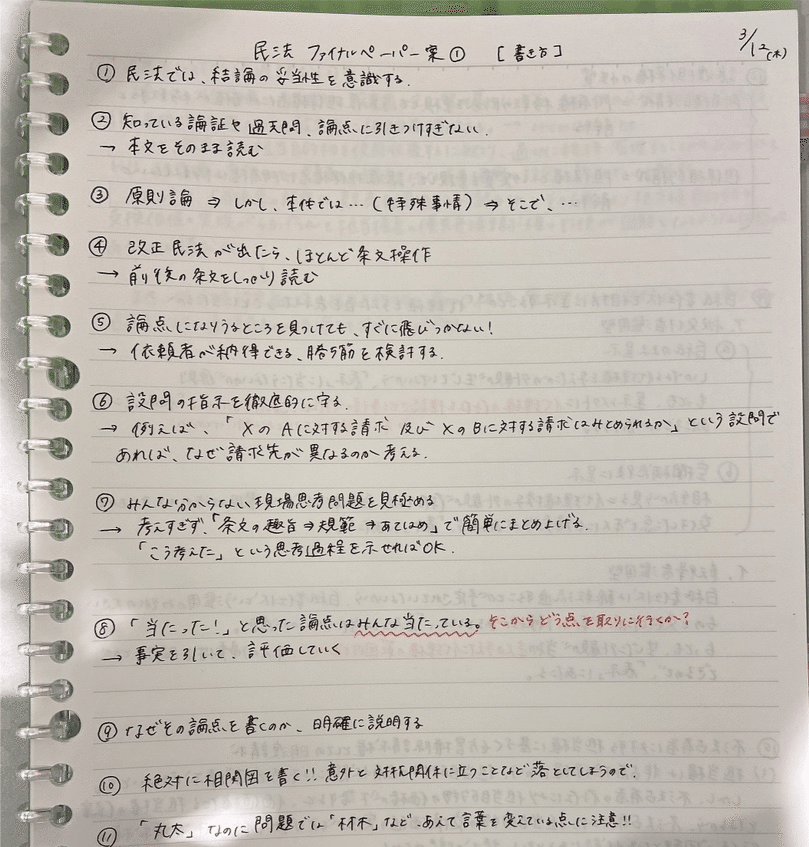 3/12(木)
民法 ファイナルペーパー案① [書き方]
① 民法では、結論の妥当性を意識する.
② 知っている論証や過去問、論点に引きつけすぎない.
→ 本文をそのまま読む
③ 原則論 ⇒ しかし、本件では…(特殊事情) ⇒ そこで、…
④ 改正民法が出たら、ほとんど条文操作
→ 前後の条文をしっかり読む
⑤ 論点になりうるところを見つけても、すぐに飛びつかない!
→ 依頼者が納得できる、勝ち筋を検討する.
⑥ 設問の指示を徹底的に守る.
→ 例えば、「XのAに対する請求 及び XのBに対する請求はみとめられるか」という設問で
あれば、なぜ請求先が異なるのか考える.
⑦ みんな分からない現場思考問題を見極める
→ 考えすぎず、「条文の趣旨⇒規範⇒あてはめ」で簡単にまとめ上げる.
「こう考えた」という思考過程を示せればOK.
⑧ 「当たった!」と思った論点はみんな当たっている。そこからどう点を取りに行くか?
→ 事実を引いて、評価していく
⑨ なぜその論点を書くのか、明確に説明する
⑩ 絶対に相関図を書く!! 意外と対抗関係に立つことなど落としてしまうので.
⑪ 「丸太」なのに問題では「材木」など、あえて言葉を変えている点に注意!!